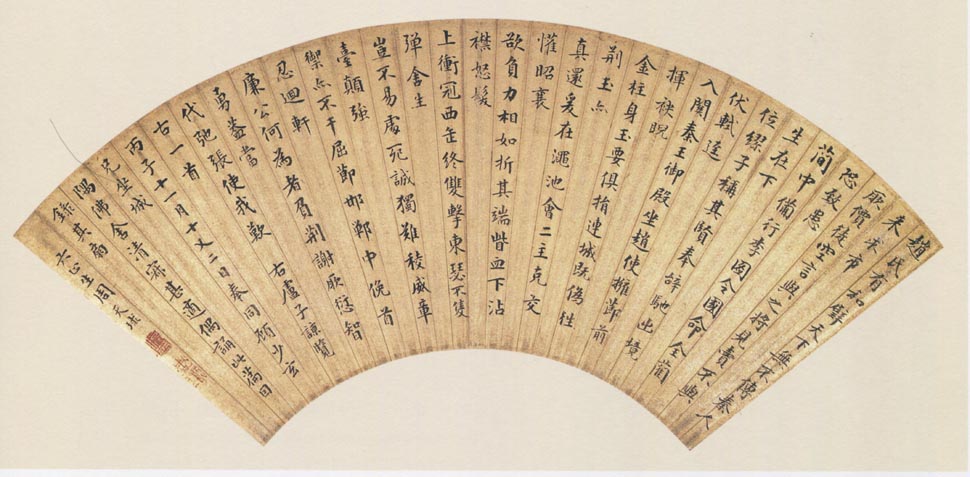 趙氏有和璧天下無不傳秦人
来求市
厥價徒空言與之將見賣不與
恐致患
簡中備行李圖令國命全藺
生在下
位繆子稱其賢奉辭馳出境
伏軾逕
入關秦王御殿坐趙使擁節前
揮袂睨
金柱身玉要俱捐連城既偽往
荊玉亦
真還爰在澠池會二主克交
懽昭襄
欲負力相如折其端眥血下沾
襟怒髮
上衝冠西缶終雙擊東瑟不隻
彈舍生
豈不易處死誠獨難稜威章
臺顛強
禦亦不干屈節邯鄲中俛首
忍迴軒
廉公何為者負荊謝厥愆智
勇蓋當
代弛張使我歎 右盧子諒覽
古一首
丙子十一月十又二日奉同 少玄
兄坐城
隅佛舍清齋甚適偶誦此篇因
錄其扇
六止生周天球